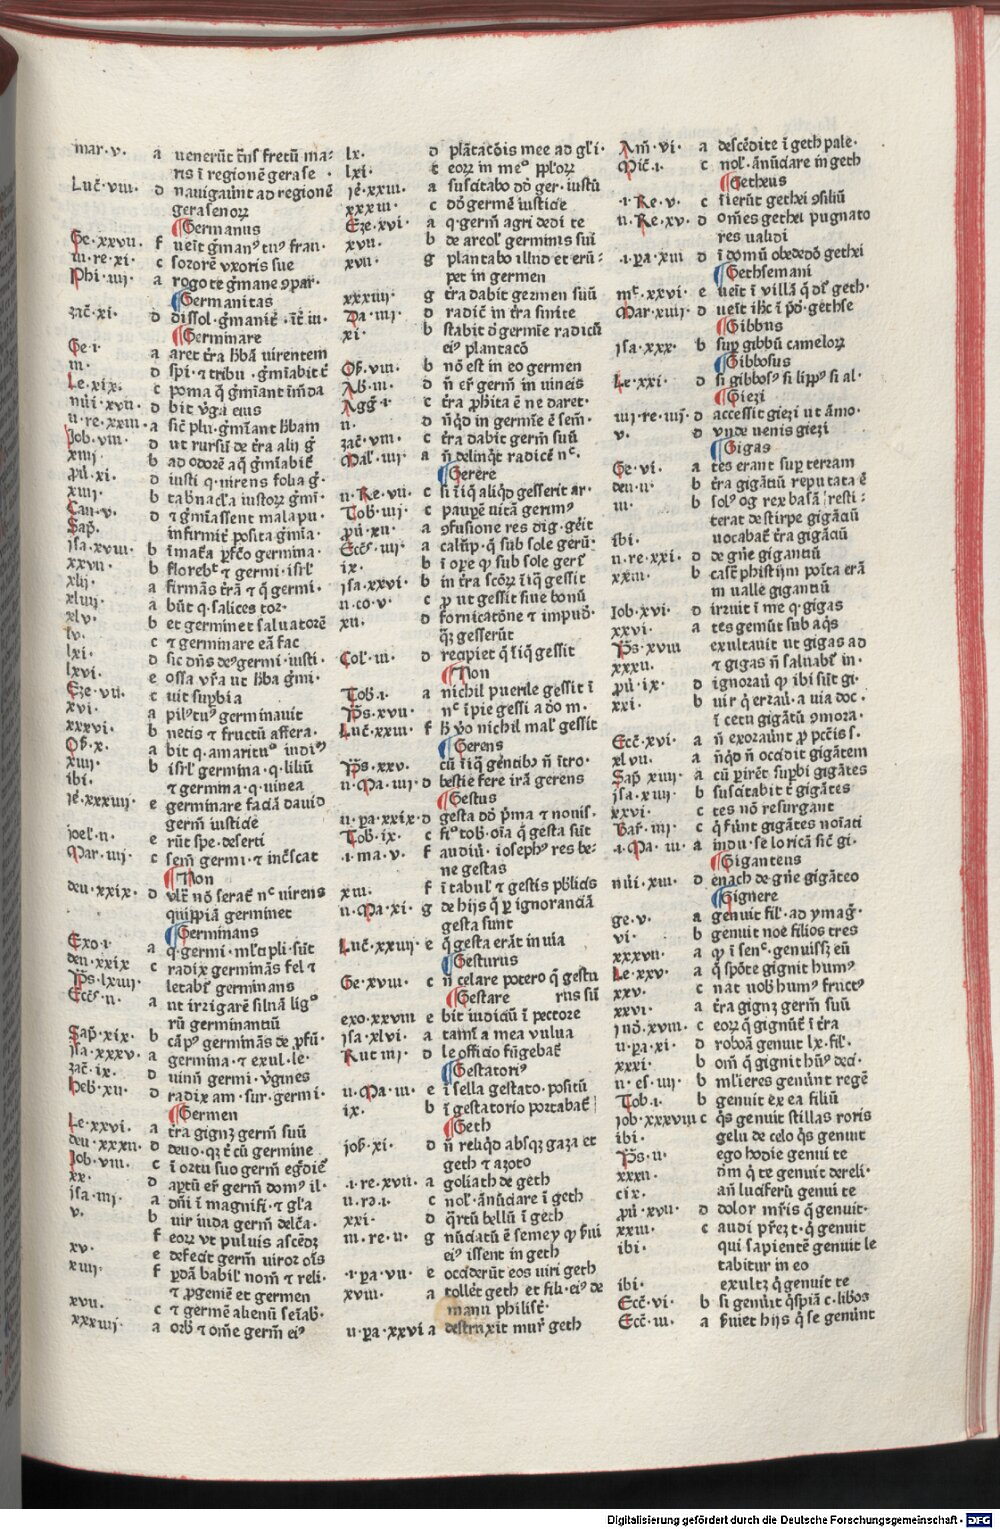 mar·v· a uenerūt trās fretū ma:
ris ī regionē gerase ·
Luc̄·viii· d nauigauūt ad regionē
gerasenoꝝ
¶Germanus
Ge·xxvii· f ueīt ḡmanꝰ tuꝰ frau·
iii·re·xi· c sororē vxoris sue
Phi·iiij· a rogo te ḡmane ꝯpar·
¶Germanitas
zac̄·xi· d dissol·ḡmanit̄·
¶Germinare
Ge·i· a aret t̄ra hb̄ā uirentem
iii· d
Le·xix· c poma q̄ ḡmīant īmūda
nūi·xvii· d bit v̄ga eius
ii·re·xxiii· a sic̄ plu·ḡmīant hb̄am
Job·viii· d ut rursū de t̄ra alij ḡ
xiiij· b ad odorē aq̄ ḡmīabit̄
ꝓū·xi· d iusti q·uirens folia ḡ·
xiiij· b tab̄nacl̄a iustoꝝ ḡmī·
Can·v· d ⁊ ḡmīassent malapu·
Sap̄· infirmit̄ posita ḡmīa·
jsa·xviii· b īmat̄a ꝑfc̄o germina·
xxvii· b floreb̄t ⁊ germi·isrl̄
xlij· a firmās t̄rā ⁊ q germi·
xliiij· a būt q·salices tor·
xlv· b et germinet saluatorē
lv· c ⁊ germinare eā fac
lxi· d sic dn̄s deꝰ germi·iusti·
lxvi· e ossa vr̄a ut hb̄a ḡmi·
Eze·vii· c uit suꝑbia
xvi· a pilꝰtuꝰ germinauit
xxxvi· b netis ⁊ fructū affera·
Os̄·x· a bit q·amaritu° iudiꝰ
xiiij· b isrl̄ germina·q·liliū
ibi· ⁊ germina·q·uinea
je̅·xxxiij· e germinare faciā dauid
germ̄ iusticie
joel̄·ii· e rūt spe·deserti
Mar·iiij· c sem̄ germi·⁊ inc̄scat
¶Non
deu·xxix· d vlt̄ nō serat̄ nᶜ uirens
quippiā germinet
¶Germinans
Exo·i· a q·germi·ml̄tipli·sūt
deu·xxix c radix germinās fel ⁊
ꝓs·lxviii· letab̄t germinans
Ecc̄s·ii· a ut irrigarē siluā lig°
rū germinantiū
Sap̄·xix· b cāpꝰ germinās de ꝓfū·
jsa·xxxv· a germina·⁊ exul·le·
zac̄·ix· d uinū germi·v̄gines
heb̄·xii· d radix am·sur·germi·
¶Germen
Le·xxvi· a t̄ra gignꝫ germ̄ suū
deu·xxxii· d deuo·qꝫ t̄ cū germine
Job·viii· c ī ortu suo germ̄ eḡdiēt̄
xx· d aꝑtū er̄ germ̄ domꝰ il·
jsa·iiij· a dn̄i ī magnifi·⁊ gl̄a
v· b uir iuda germ̄ delc̄a·
f eoꝝ vt puluis ascēdꝫ
xv· e defecit germ̄ uiroꝝ oīs
xiiij· f ꝑdā babil̄ nom̄ ⁊ reli·
⁊ ꝓgeniē et germen
xvii· c ⁊ germē alienū
xxxiiij· a orb̄ ⁊ om̄e germ̄ eiꝰ
lx· d plātatōis mee ad gl̄i·
lxi· c eoꝝ in me° ppl̄oꝝ
je̅·xxiii· a suscitabo dd̄ ger·iustū
xxxiii· c dd̄ germē iusticie
Eze·xvi· a q·germ̄ agri dedi te
xvii· b de areol̄ germinis sui
xvii· g plantabo illud et erū:
pet in germen
xxxiiij· g t̄ra dabit germen suū
Da·iiij· d radic̄ in t̄ra sinite
xi· b stabit d̄ germīe radicū
eiꝰ plantacō
Os̄·viii· b nō est in eo germen
Ab̄·iii· d n̄ er̄ germ̄ in uineis
Agḡ·i· c t̄ra ꝓhibita ē ne daret·
ii· d nūqd̄ in germīe ē sem̄·
zac̄·viii· c t̄ra dabit germ̄ suū
Mal̄·iiij· a n̄ delinqt̄ radicē nᶜ·
¶Gerere
ii·Re·vii· c si īiq̄ aliqd̄ gesserit ar·
Tob̄·iiij· c pauꝑē uitā gerimꝰ
ꝓū·xii· a ꝯfusione res dig·ger̄it
Ecc̄s·iiij· a calūp·q̄ sub sole gerū·
ix· b ī oꝑe ꝙ sub sole geri̅
jsa·xxvi· b in t̄ra sc̄oꝝ īiq̄ gessit
ii·co·v· c ꝓut gessit siue bonū
xii· d fornicatōne ⁊ impud̄·
qꝫ gesserūt
Col̄·iii· d recipiet q̄ īiq̄ gessit
¶Non
Tob̄·i· a nichil puerile gessit ī
ꝓs·xvii· nᶜ īpie gessi a do m·
Luc̄·xxiii· f h̄ v̄o nichil mal̄ gessit
¶Gerens
ꝓs·xxv· cū īiq̄ gentibꝰ n̄ ītro·
ii·Ma·iiij· d bestie fere irā gerens
¶Gestus
ii·pa·xxix· d gesta dd̄ p̄ma ⁊ nouis·
Tob̄·ix· c fi° tob̄·oīa q̄ gesta sūt
·i·ma·v· f audiū·iosephꝰ res be:
ne gestas
xiii· f ī tabul̄ ⁊ gestis pb̄licis
ii·Ma·xi· g de hijs q̄ ꝑ ignoranciā
gesta sunt
Luc̄·xxiiij· e q̄ gesta erāt in uia
¶Gesturus
Ge·xviii· c n̄ celare potero q̄ gestu
¶Gestare rus sū
exo·xxviii e bit iudiciū ī pectore
jsa·xlvi· a tami̅ a mea vulua
Rut iiij· d le officio fūgebat̄
¶Gestatoriꝰ
ii·Ma·iii· e ī sella gestato·positū
ix· b ī gestatorio portabat̄
¶Geth
job·xi· d n̄ reliqd̄ absqꝫ gaza et
geth ⁊ azoto
·i·re·xvii· a goliath de geth
ii·re·i· c nol̄·ānūciare ī geth
xxi· d q̄rtū bellū ī geth
iii·re·ii· g nūciatū ē semey ꝙ s̄ui
eiꝰ issent in geth
·i·pa·vii· e occiderūt eos uiri geth
xviii· a tollet̄ geth et fili·eiꝰ de
manu philist̄·
ii·pa·xxvi a destruxit mur̄ geth
Am̄·vi· a descēdite ī geth pale·
Mic̄·i· c nol̄·ānūciare in geth
¶Getheus
·i·Re·v· c īierūt gethei ꝯsiliū
ii·Re·xv· d om̄es gethei pugnato
res ualidi
·i·pa·xiii d ī domū obededō gethei
¶Gethsemani
mᶜ·xxvi· e ueīt ī villā q̄ dr̄ geth·
Mar·xiiij· d ueīt ihc̄ ī p̄d̄·gethse
¶Gibbus
jsa·xxx· b suꝑ gibbū cameloꝝ
¶Gibbosus
Le·xxi· d si gibbosꝰ si lippꝰ si al·
¶Giezi
iiij·re·iiij· d accessit giezi ut āmo·
v· d vnde uenis giezi
¶Gigas
Ge·vi· a tes erant suꝑ terram
deu·ii· b t̄ra gigātū reputata ē
iii· b solꝰ og rex basā resti:
terat de stirpe gigātū
ibi· uocabat̄ t̄ra gigātū
ii·re·xxi· d de gn̄e gigantiū
xxiii· b castr̄ phistijm posita erā
in ualle gigantū
Job·xvi· d irruit ī me q·gigas
xxvi· a tes gemūt sub aqͥs
ꝓs·xviii exultauit ut gigas ad
xxxii· ⁊ gigas n̄ saluab̄t in·
ꝓū·ix· d ignorauīt ꝙ ibi sūt gi·
xxi· b uir q̄ errau·a uia doc·
ī cetu gigātū ꝯmora·
Ecc̄·xvi· a n̄ exorauūt ꝓ pcc̄is s·
xlvii· a nūqd̄ n̄ occidit gigātem
Sap̄·xiiij· a cū ꝑirēt suꝑbi gigātes
jsa·xiiij· b suscitabit t̄ gigātes
xxvi· c tes nō resurgant
Bar̄·iii· c q̄ fūnt gigātes noīati
·i·Ma·iii· a indu·se loricā sic̄ gi·
¶Giganteus
nūi·xiii· d enach de gn̄e gigāteo
¶Gignere
ge·v· a genuit fil̄·ad ymaḡ·
vi· b genuit noe filios tres
xxxvii· a ꝙ ī senᶜ·genuissꝫ eū
Le·xxv· a q̄ spōte gignit humꝰ
xxv· c nat uob̄ humꝰ fructꝰ
xxvi· a t̄ra gignꝫ germ̄ suū
jud̄·xviii· c eoꝝ q̄ gignūt̄ ī t̄ra
ii·pa·xi· d roboā genuit lx·fil̄·
xxxi· b om̄ q̄ gignit hūꝰ deci·
ii·es·iiij· b ml̄ieres genūnt regē
Tob̄·i· b genuit ex ea filiū
job·xxxviii c qͥs genuit stillas roris
ibi· gelu de celo qͥs genuit
ꝓs·ii· ego hodie genui te
xxxii· dm̄ q̄ te genuit dereli·
cix· an̄ luciferū genui te
ꝓū·xvii· d dolor mr̄is q̄ genuit·
xxiii· c audi pr̄eꝫ t·q̄ genuit
ibi· qui sapientē genuit le
tabitur in eo
ibi· exultꝫ q̄ genuit te
Ecc̄·vi· b si genūit qͥspiā c·libos
Ecc̄·iii· a s̄uiet hijs q̄ se genūnt
Digitalisierung gefördert durch die Deutsche Forschungsgemeinschaft - DFG